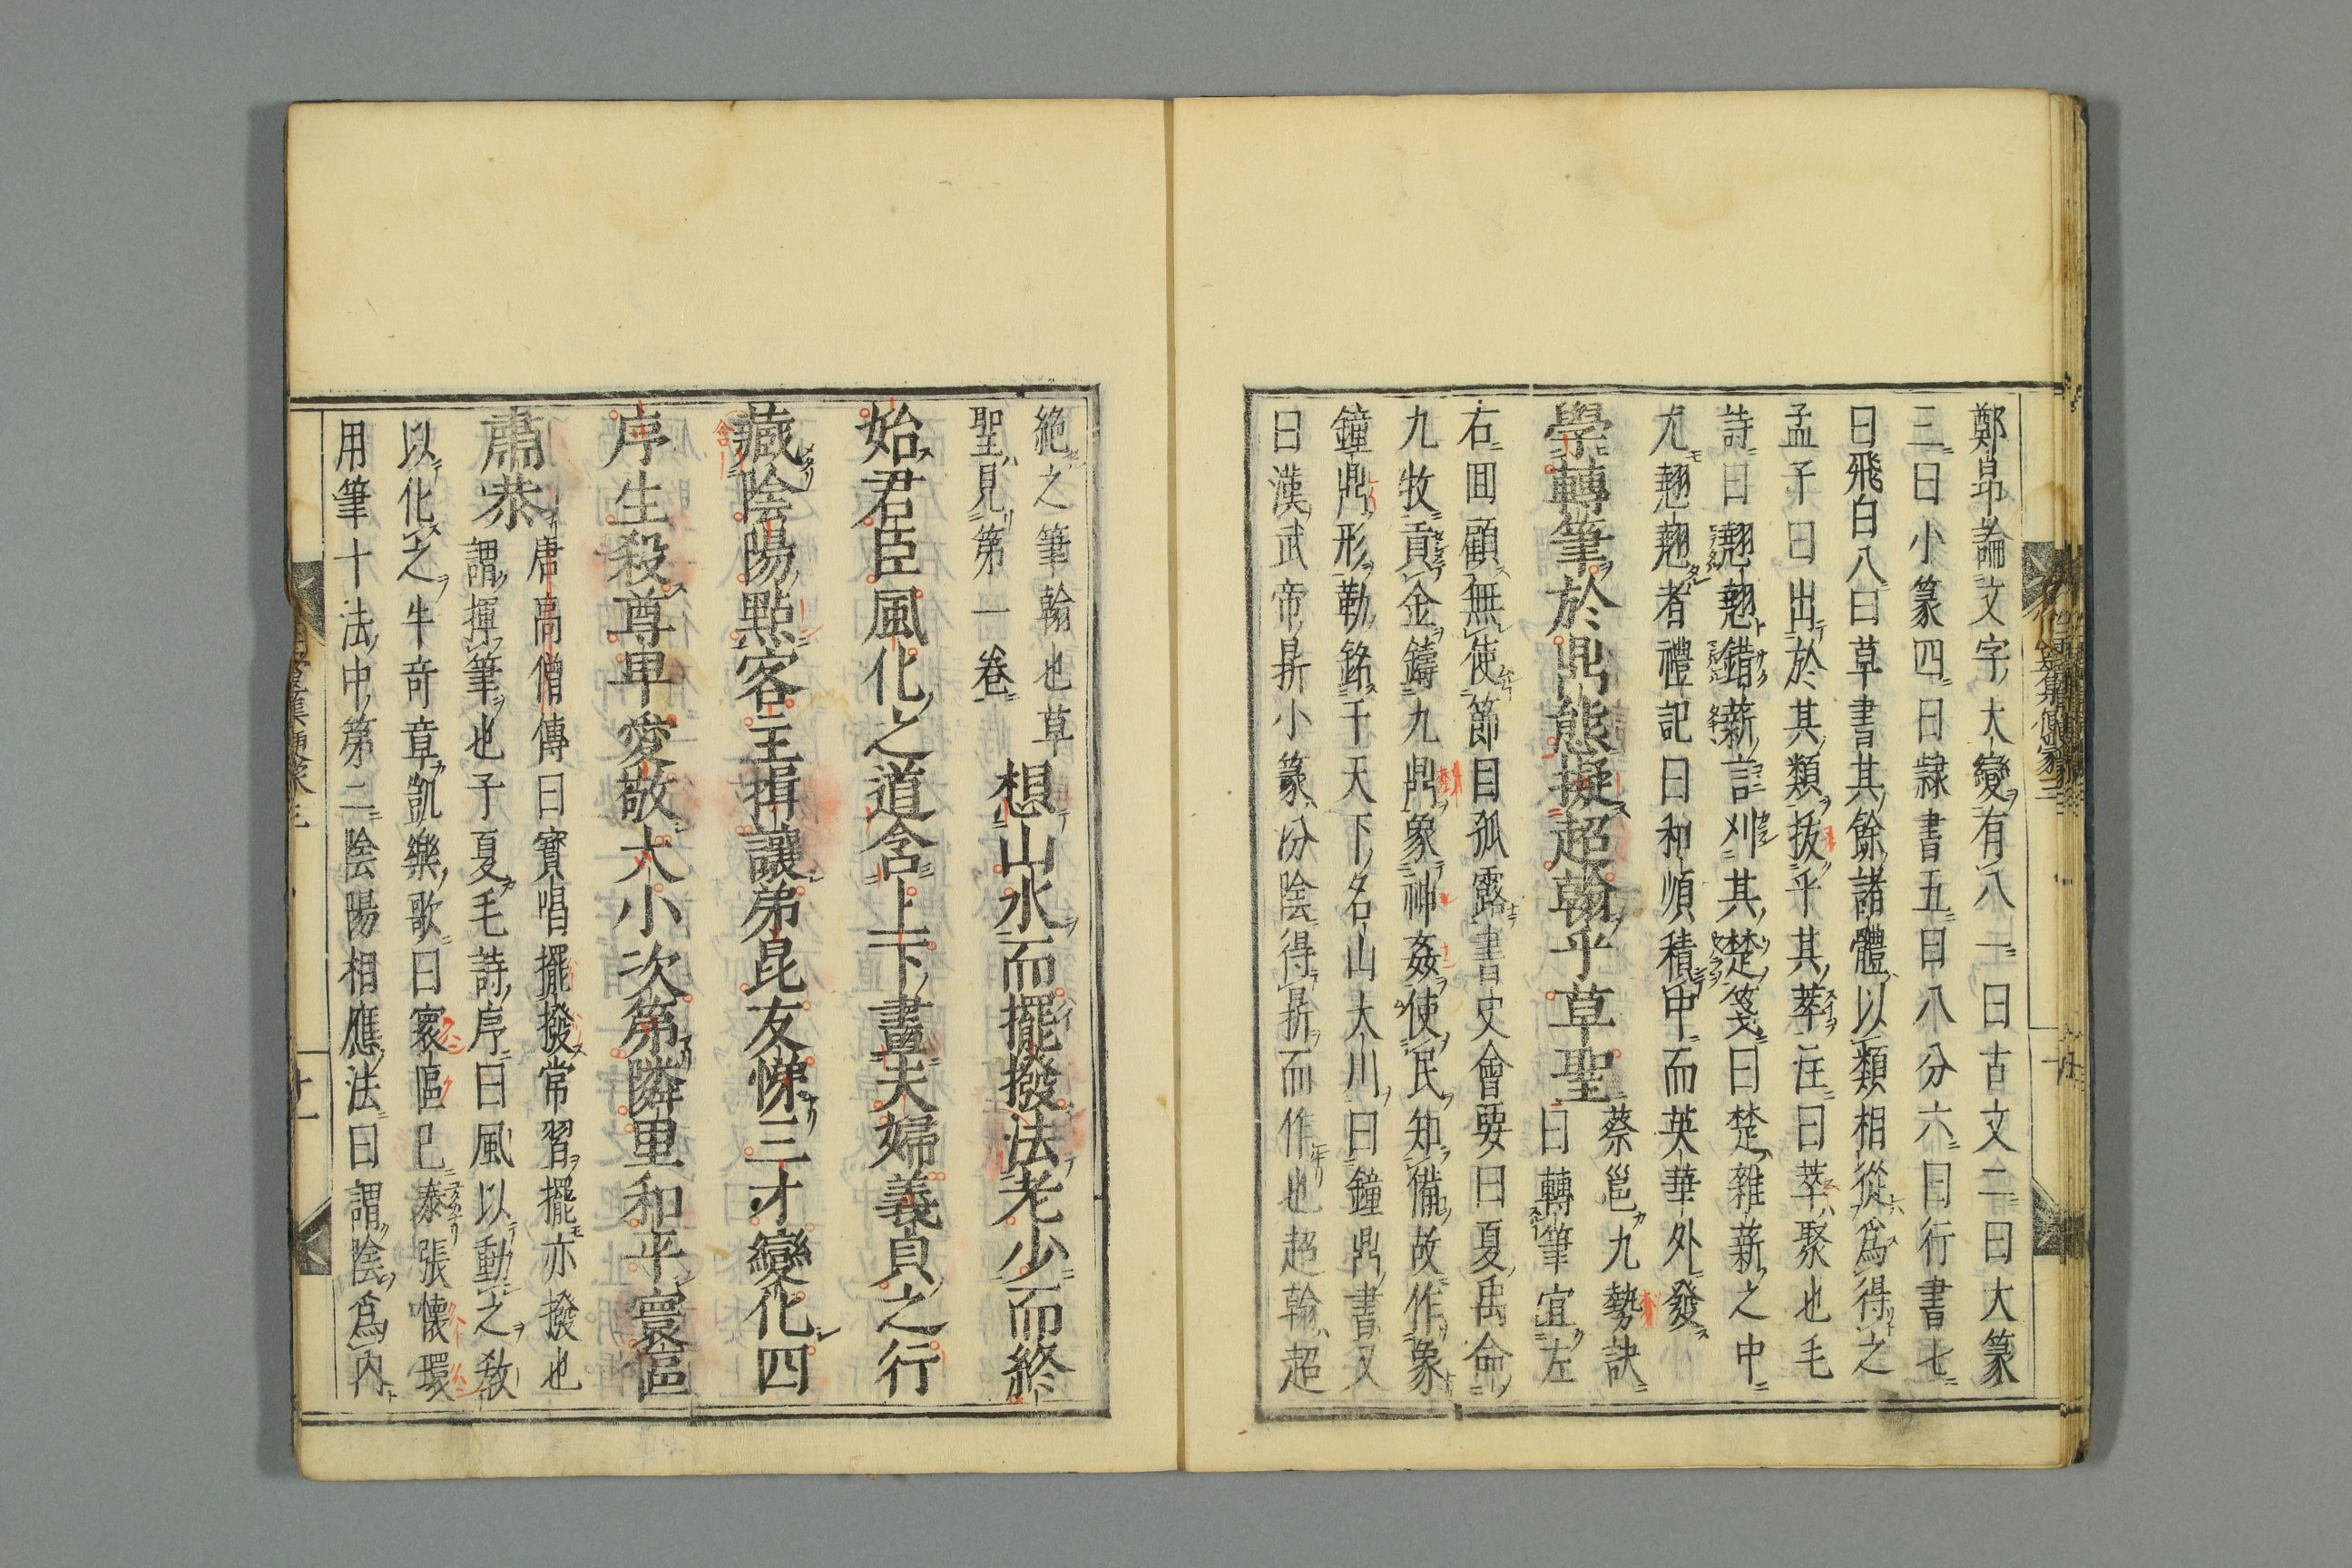 鄭昂論文字大變有八一曰古文二曰大篆
三曰小篆四曰隸書五曰八分六曰行書七
曰飛白八曰草書其餘諸體以類相從爲得之
孟子曰出於其類拔乎其萃注曰萃聚也毛
詩曰翹翹錯薪言刈其楚箋曰楚雜薪之中
尤翹翹者禮記曰和順積中而英華外發
學轉筆於鼎態擬超翰乎草聖
蔡邕九勢訣
曰轉筆宜左
右囬顧無使節目孤露書史會要曰夏禹命
九牧貢金鑄九鼎象神姦使民知備故作象
鐘鼎形勒銘于天下名山大川曰鐘鼎書又
曰漢武帝
小篆
分陰得
而作也超翰超
絶之筆翰也草
聖見第一卷
想山水而擺撥法老少而終
始君臣風化之道含上下畫夫婦義貞之行
藏陰陽點客主揖讓弟昆友悌三才變化四
序生殺尊卑愛敬大小次第隣里和平寰區
肅恭
唐高僧傳曰寶唱擺撥常習擺亦撥也
謂揮筆也子夏毛詩序曰風以動之敎
以化之牛奇章凱樂歌曰寰區已泰張懐環
用筆十法中第二陰陽相應法曰謂陰爲内